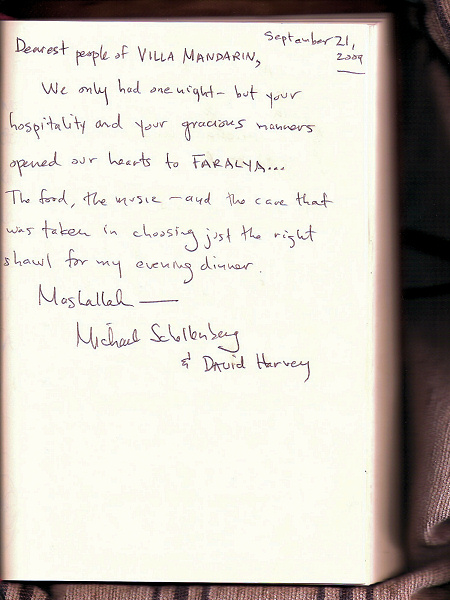 September 21,
2009
Dearest people of VILLA MANDARIN,
We only had one night – but your
hospitality and your gracious manners
opened our hearts to FARALYA...
The food, the music – and the care that
was taken in choosing just the right
shawl for my evening dinner.
Mashallah —
Michael Schellenberg
& David Harvey